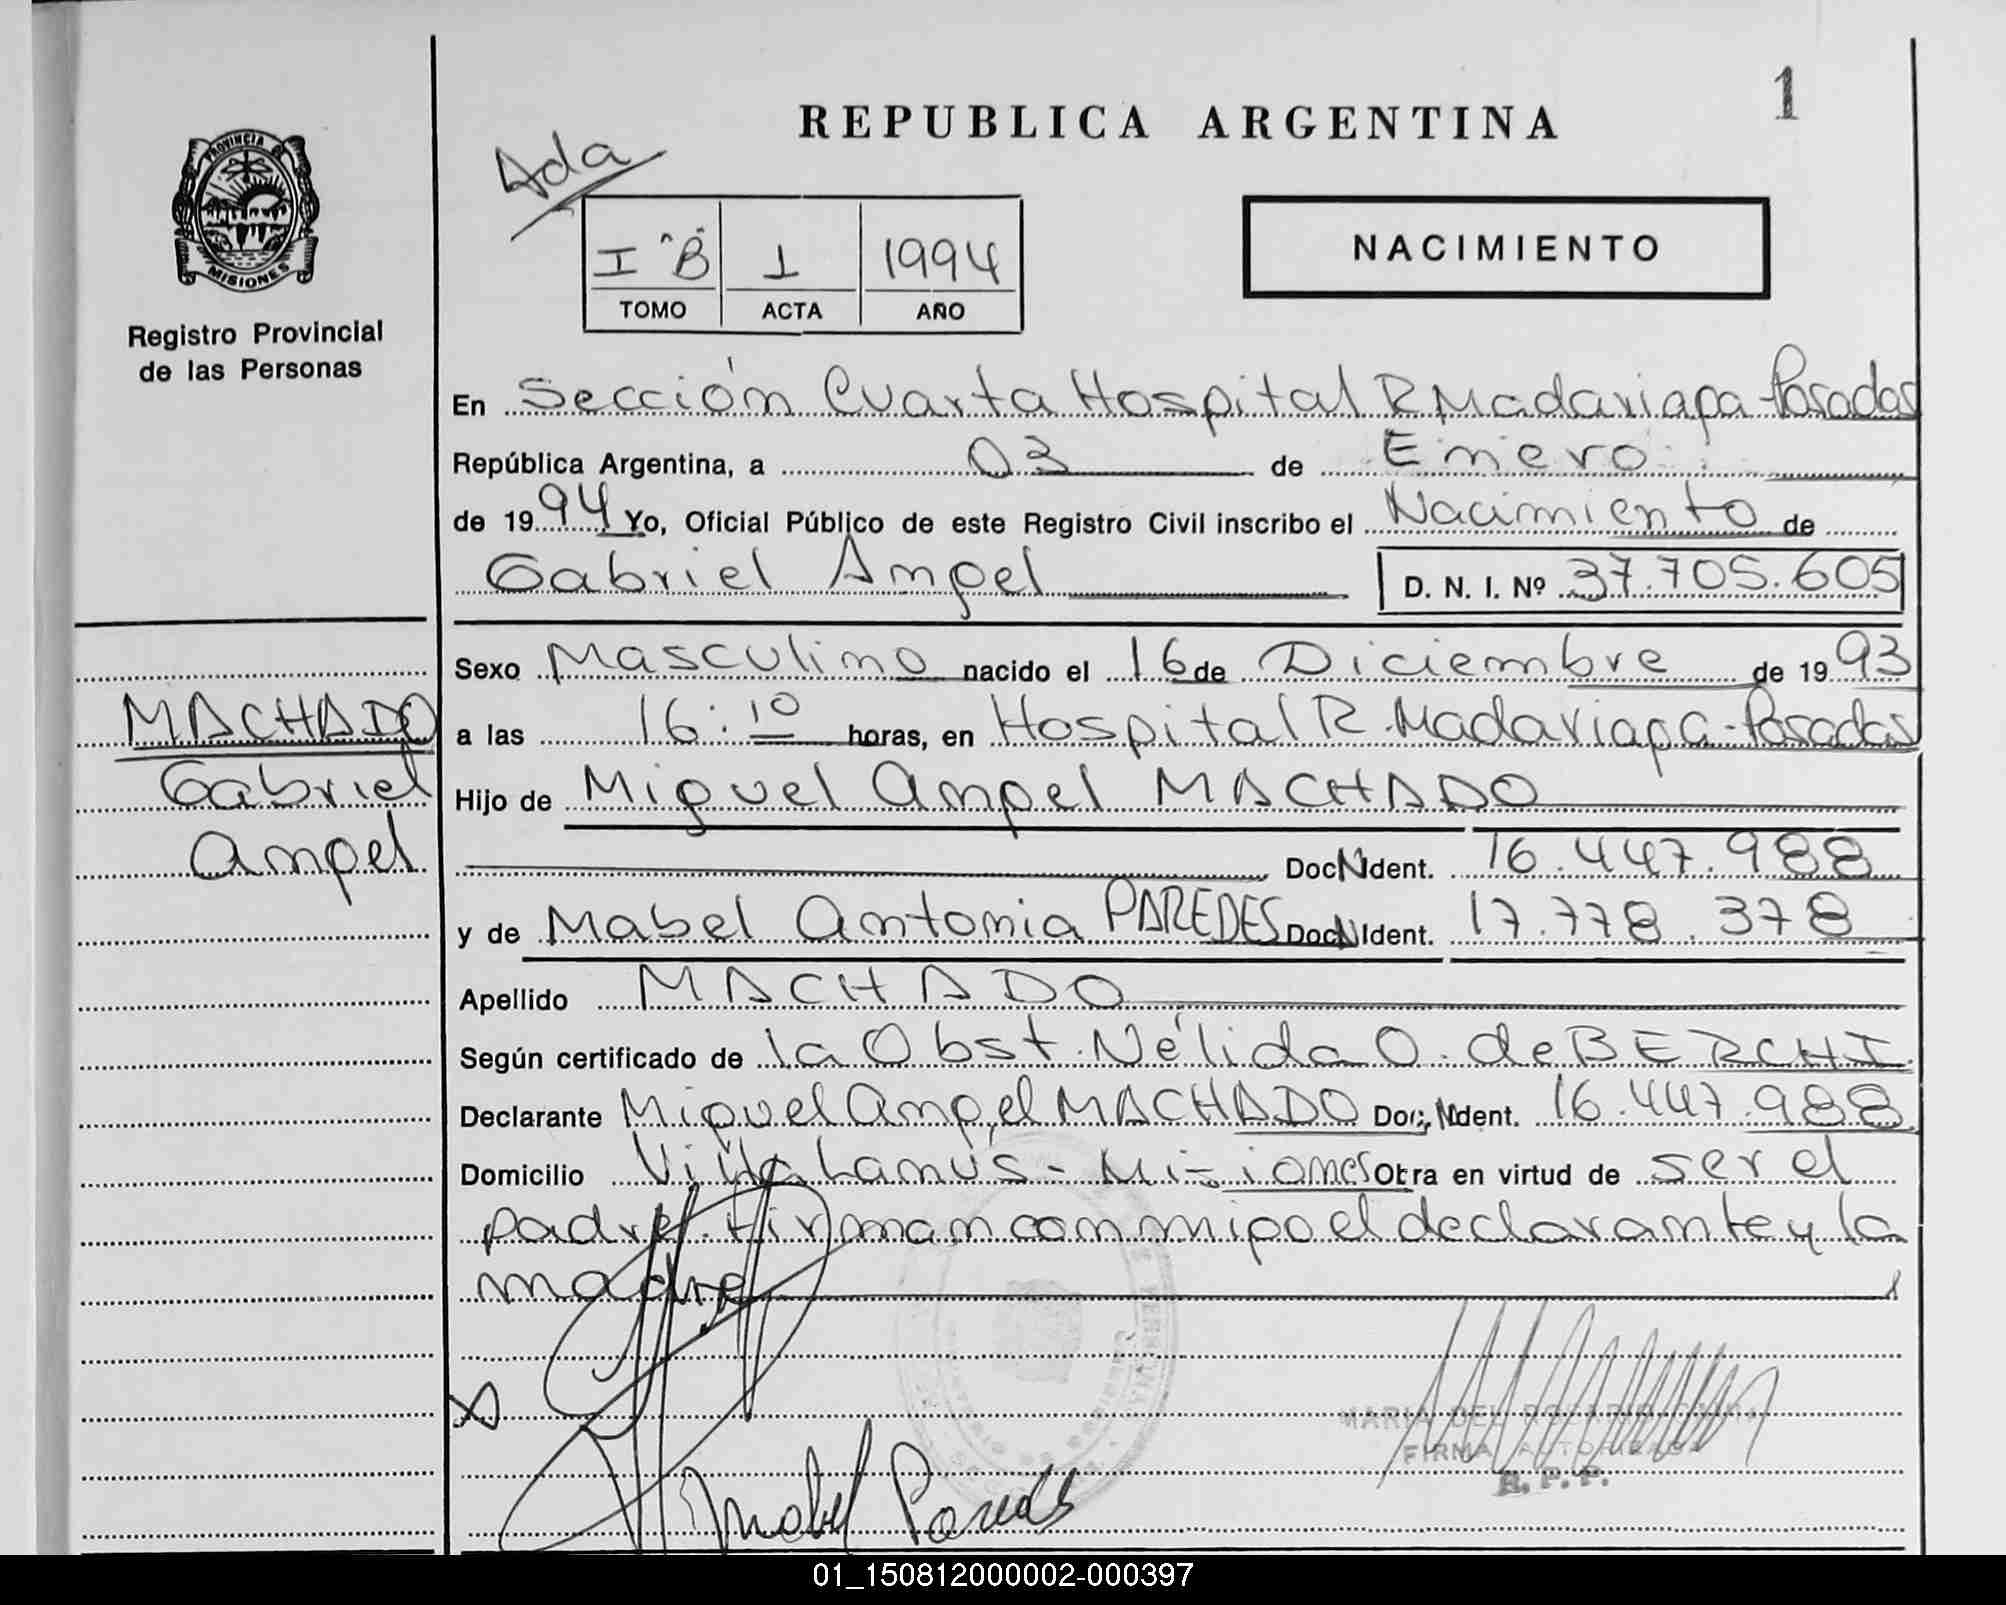 1
REPUBLICA ARGENTINA
Ada
PROVINCIA DE
MISIONES
Registro Provincial
de las Personas
I "B" 1 1994
TOMO ACTA AÑO
NACIMIENTO
En Sección Cuarta Hospital R Madariaga-Posadas
República Argentina, a 03 de Enero
de 1994 Yo, Oficial Público de este Registro Civil inscribo el Nacimiento de
Gabriel Angel D. N. I. Nº 37.705.605
Sexo Masculino nacido el 16 de Diciembre de 1993
MACHADO
Gabriel
Angel
a las 16:10 horas, en Hospital R. Madariaga-Posadas
Hijo de Miguel Angel MACHADO
Doc N Ident. 16.447.988
y de Mabel Antonia PAREDES Doc N Ident. 17.778.378
Apellido MACHADO
Según certificado de la Obst. Nélida O. de BERCHI
Declarante Miguel Angel MACHADO Doc. N Ident. 16.447.988
Domicilio Villa Lanús - Misiones Obra en virtud de ser el
padre. Firman conmigo el declarante y la
madre
MARIA DEL ROSARIO
FIRMA AUTORIZADA
R. P. P.
Mabel Paredes
01_150812000002-000397